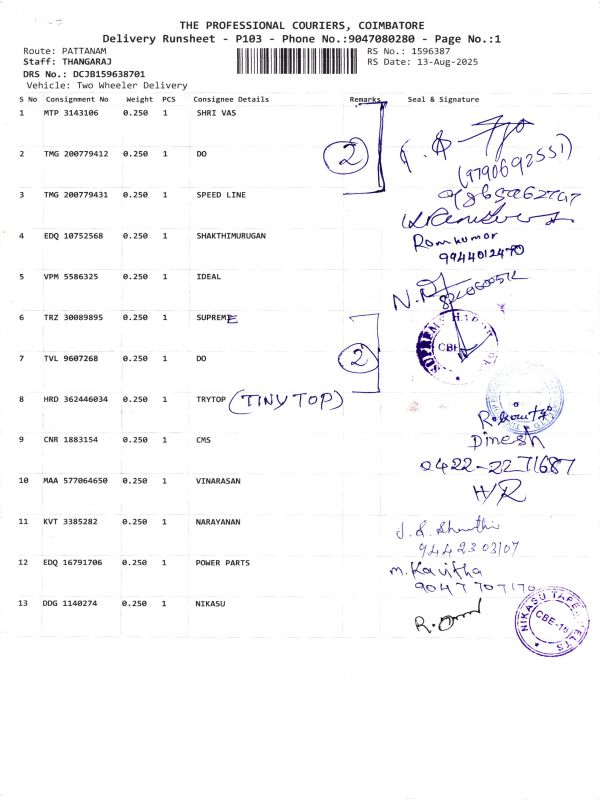 THE PROFESSIONAL COURIERS, COIMBATORE
Delivery Runsheet - P103 - Phone No.:9047080280 - Page No.:1
Route: PATTANAM RS No.: 1596387
Staff: THANGARAJ RS Date: 13-Aug-2025
DRS No.: DCJB159638701
Vehicle: Two Wheeler Delivery
S No Consignment No Weight PCS Consignee Details Remarks Seal & Signature
1 MTP 3143106 0.250 1 SHRI VAS
2 TMG 200779412 0.250 1 DO 2
(9790692551)
3 TMG 200779431 0.250 1 SPEED LINE
4 EDQ 10752568 0.250 1 SHAKTHIMURUGAN Ramkumar
9944012470
5 VPM 5586325 0.250 1 IDEAL
6 TRZ 30089895 0.250 1 SUPREME
SUPREME CBE
7 TVL 9607268 0.250 1 DO 2
8 HRD 362446034 0.250 1 TRYTOP (TINY TOP)
9 CNR 1883154 0.250 1 CMS Dinesh
0422-2271687
10 MAA 577064650 0.250 1 VINARASAN
11 KVT 3385282 0.250 1 NARAYANAN J.S. Shanthi
9442303107
12 EDQ 16791706 0.250 1 POWER PARTS M. Kavitha
9047707170
13 DDG 1140274 0.250 1 NIKASU
NIKASU TAPE BELTS CBE-16